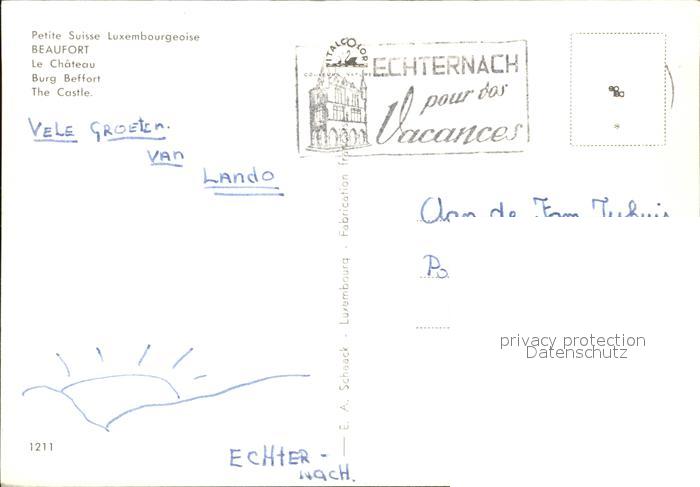 Petite Suisse Luxembourgeoise
BEAUFORT
Le Château
Burg Beffort
The Castle.
VELE GROETEN.
VAN
LANDO
ITALCOLOR
ECHTERNACH
pour vos
Vacances
Aan de Fam
Po
E. A. Schaack - Luxembourg - Fabrication
privacy protection
Datenschutz
1211
ECHTER -
NACH.